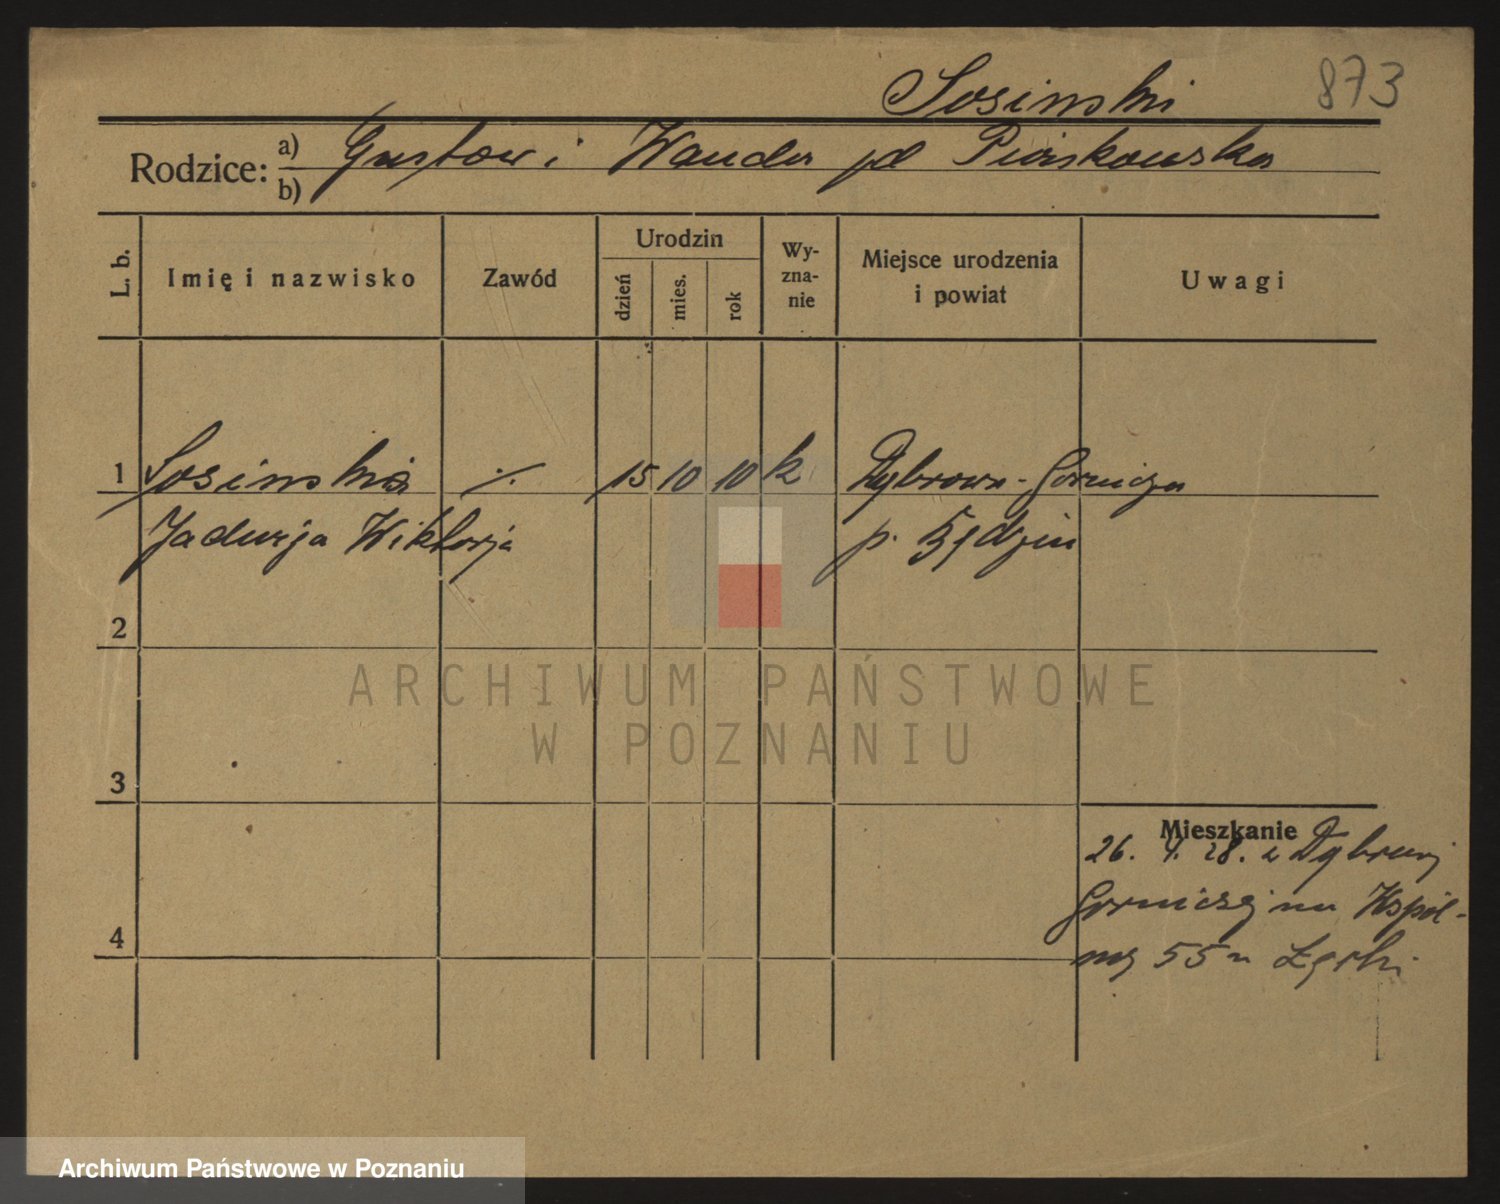 873
Sosinski
Rodzice: a) Gustaw i Wanda yd Piaskowska
b)
L. b. Imię i nazwisko Zawód Urodzin dzień mies. rok Wy-zna-nie Miejsce urodzenia i powiat Uwagi
1 Sosinska ·/· 15 10 10 k Dąbrowa-Gornicza
Jadwiga Wiktorja p. Będzin
2
ARCHIWUM PAŃSTWOWE
W POZNANIU
3
Mieszkanie
26. 4. 28. z Dąbrowj
Gorniczej na Wspól-
4
ną 55 u
Archiwum Państwowe w Poznaniu